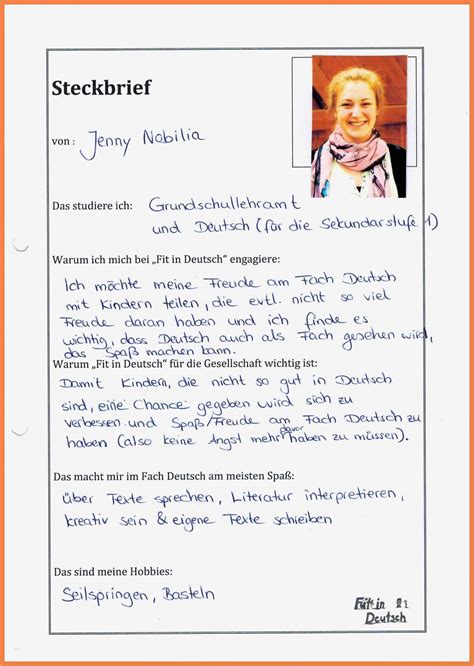 Steckbrief
von: Jenny Nabilia
Das studiere ich: Grundschullehramt
und Deutsch (für die Sekundarstufe 1)
Warum ich mich bei „Fit in Deutsch“ engagiere:
Ich möchte meine Freude am Fach Deutsch
mit Kindern teilen, die evtl. nicht so viel
Freude daran haben und ich finde es
wichtig, dass Deutsch auch als Fach gesehen wird,
das Spaß machen kann.
Warum „Fit in Deutsch“ für die Gesellschaft wichtig ist:
Damit Kindern, die nicht so gut in Deutsch
sind, eine Chance gegeben wird sich zu
verbessen und Spaß/Freude am Fach Deutsch zu
haben (also keine Angst mehr davor haben zu müssen).
Das macht mir im Fach Deutsch am meisten Spaß:
über Texte sprechen, Literatur interpretieren,
kreativ sein & eigene Texte schieben
Das sind meine Hobbies:
Seilspringen, Basteln
Fit in
Deutsch